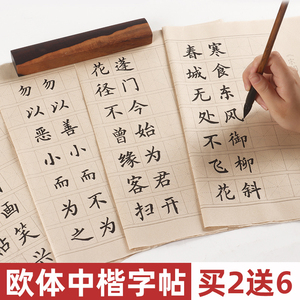 勿以恶小而为之
勿以善小而不为
花径不曾缘客扫
蓬门今始为君开
春城无处不飞花
寒食东风御柳斜
欧体中楷字帖
买2送6